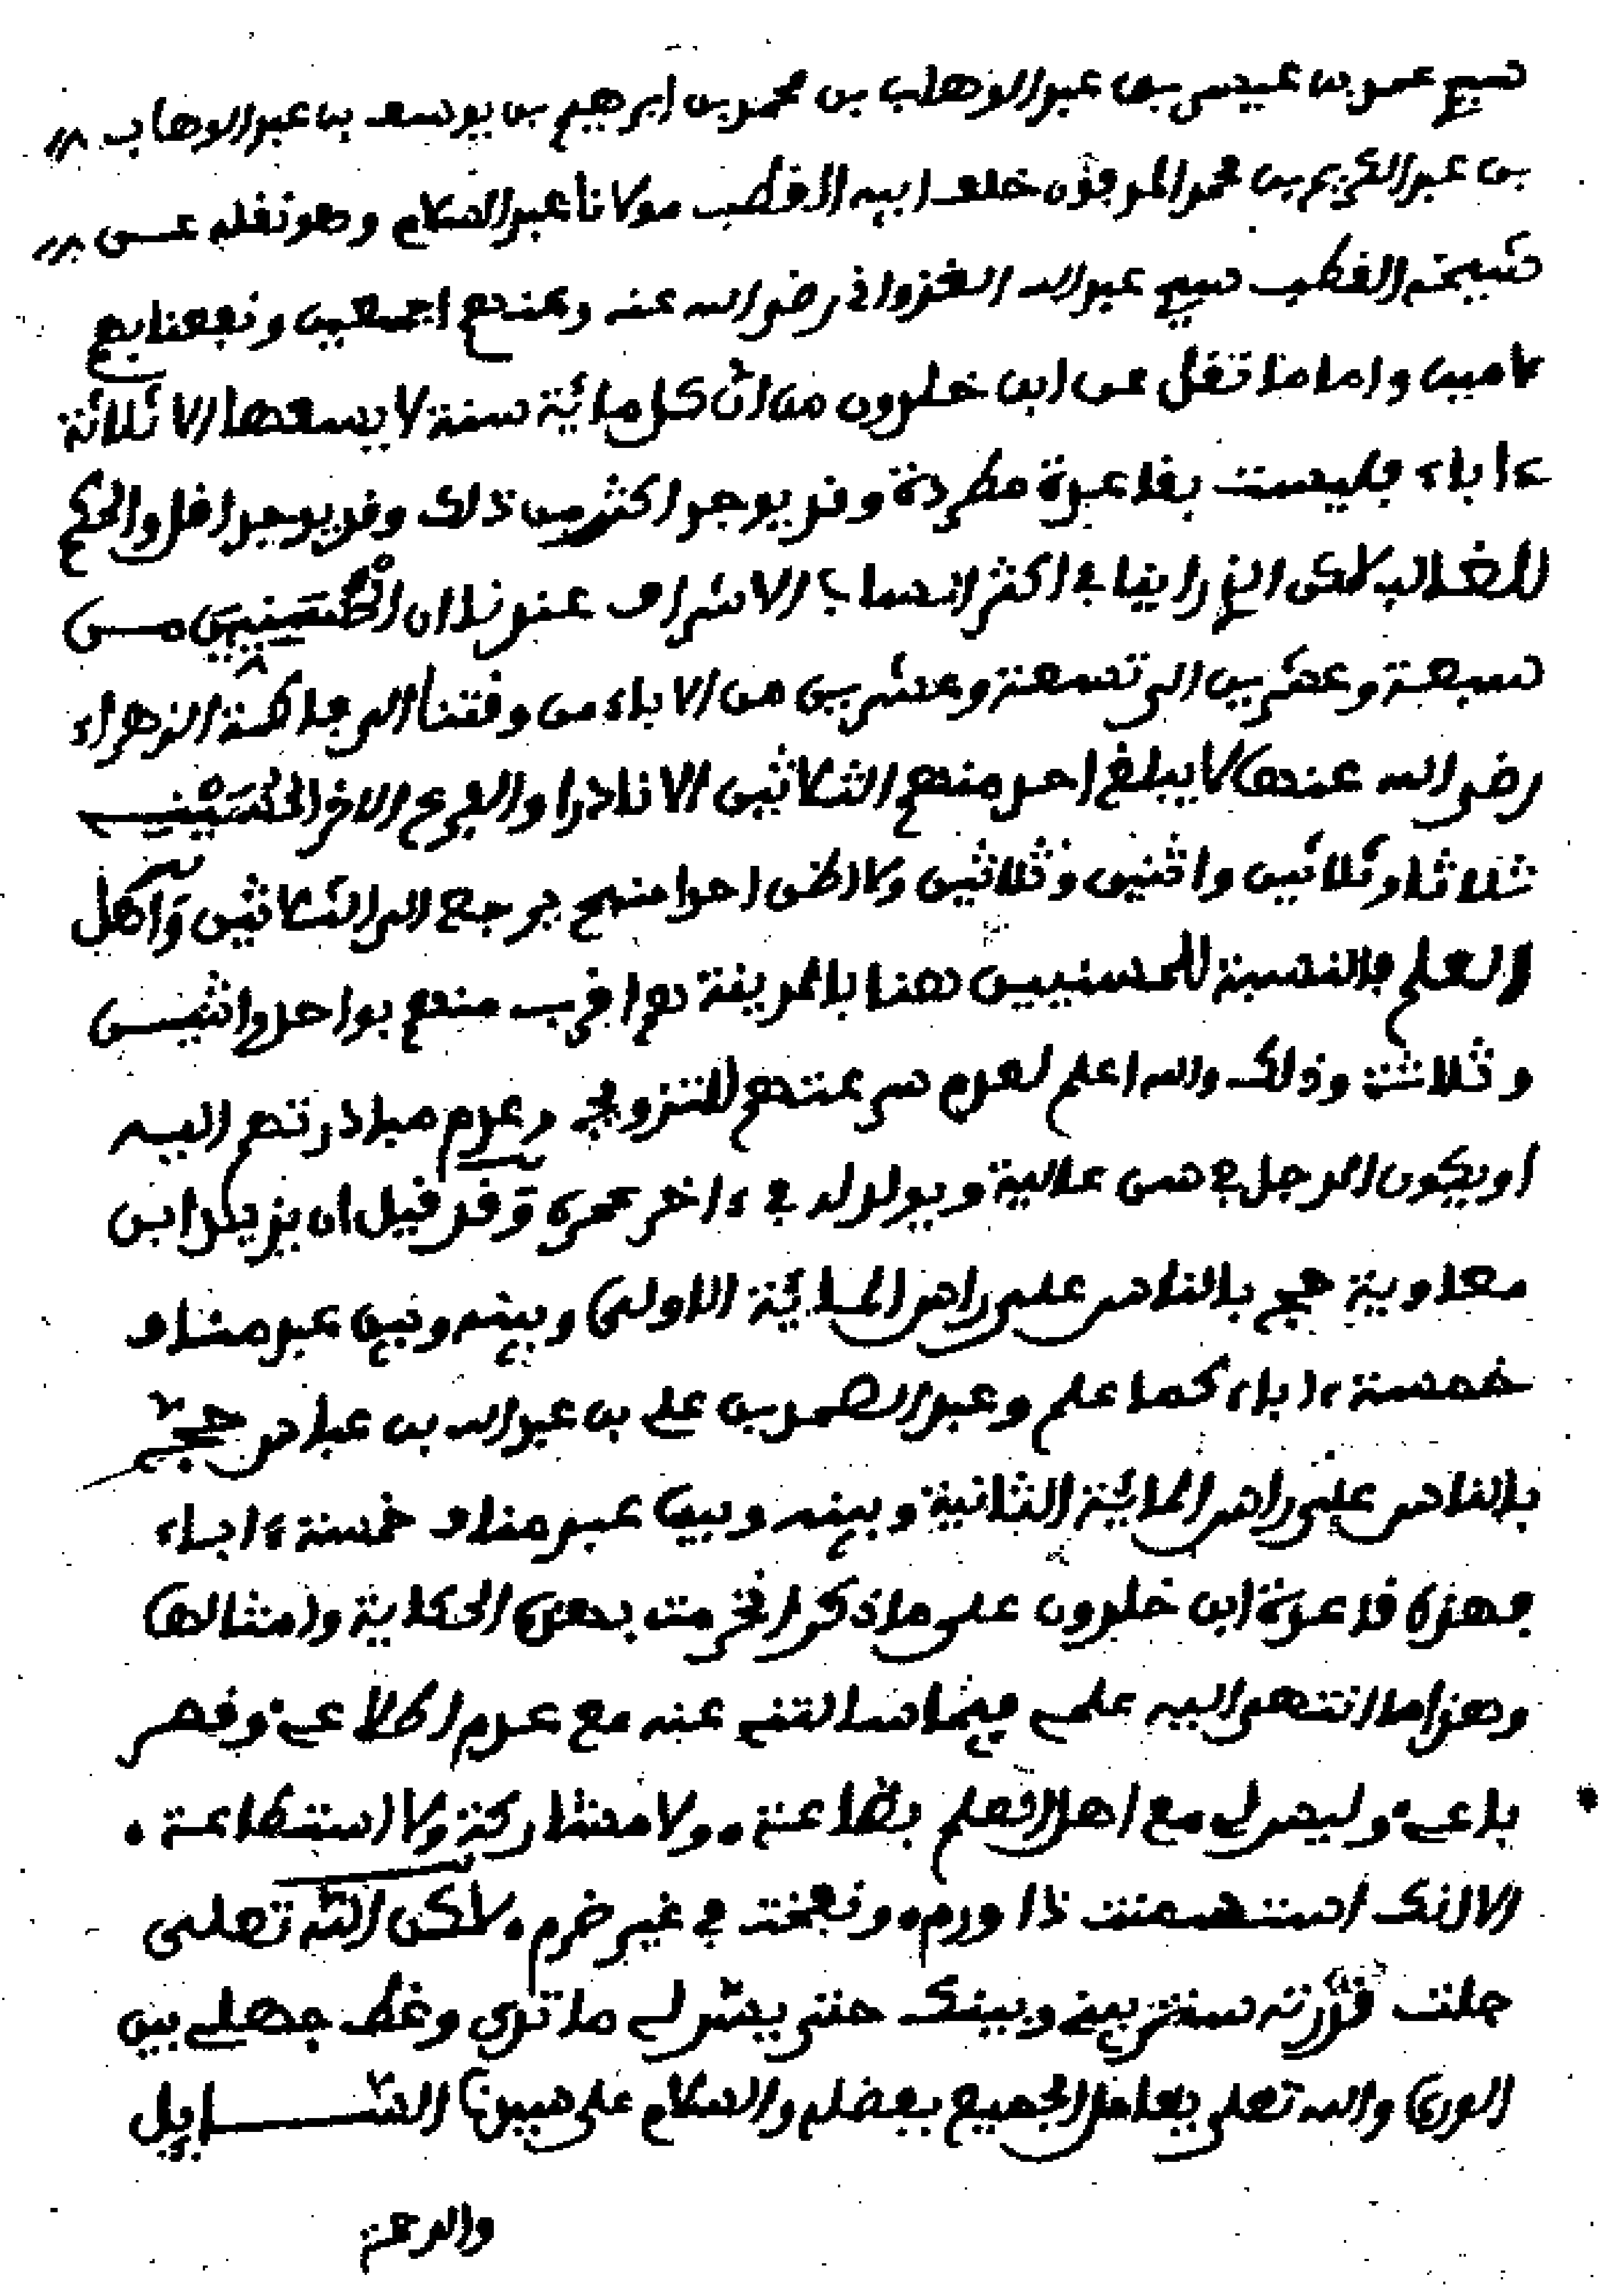 سيدي عمر بن عيسى بن عبد الوهاب بن محمد بن ابرهيم بن يوسف بن عبد الوهاب
بن عبد الكريم بن محمد المدفون خلف ابيه القطب مولانا عبد السلام وهو نقله عن
شيخه القطب سيدي عبد الله الغزواني رضي الله عنه وعنهم اجمعين ونفعنا بهم
ءامين واما ما نقل عن ابن خلدون من ان كل مائة سنة لا يسعها الا ثلاثة
ءاباء فليست بقاعدة مطردة وقد يوجد اكثر من ذلك وقد يوجد اقل والحكم
للغالب لاكن الذي راينا في اكثر انساب الاشراف عندنا ان الحسنيين من
سبعة وعشرين الى تسعة وعشرين من الاباء من وقتنا الى فاطمة الزهراء
رضي الله عنها لا يبلغ احد منهم الثلاثين الا نادرا والفرع الاخر الحسيني
ثلاثا وثلاثين واثنين وثلاثين ولا اظن احدا منهم يرجع الى الثلاثين واهل
العلم بالنسبة للحسنيين هنا بالمدينة هم اقرب منهم بواحد واثنين
وثلاثة وذلك والله اعلم لعدم سرعتهم للتزويج وعدم مبادرتهم اليه
او يكون الرجل في سن عالية ويولد له في ءاخر عمره وقد قيل ان يزيد ابن
معاوية حج بالناس على راس المائة الاولى وبينه وبين عبد مناف
خمسة ءاباء كما علم وعبد الصمد بن علي بن عبد الله بن عباس حج
بالناس على راس المائة الثانية وبينه وبين عبد مناف خمسة ءاباء
فهذه قاعدة ابن خلدون على ما ذكر انخرمت بهذه الحكاية وامثالها
وهذا ما انتهى اليه علمي فيما سالتني عنه مع عدم اطلاعي وقصر
باعي وليس لي مع اهل العلم بضاعة ولا مشاركة ولا استطاعة
الا انك استسمنت ذا ورم ونفخت في غير ضرم لاكن الله تعلى
جلت قدرته ستر بيني وبينك حتى يسر لي ما ترى وغطى جهلي بين
الورى والله تعلى يعامل الجميع بفضله والسلام على سيدنا السايل
والرحمة